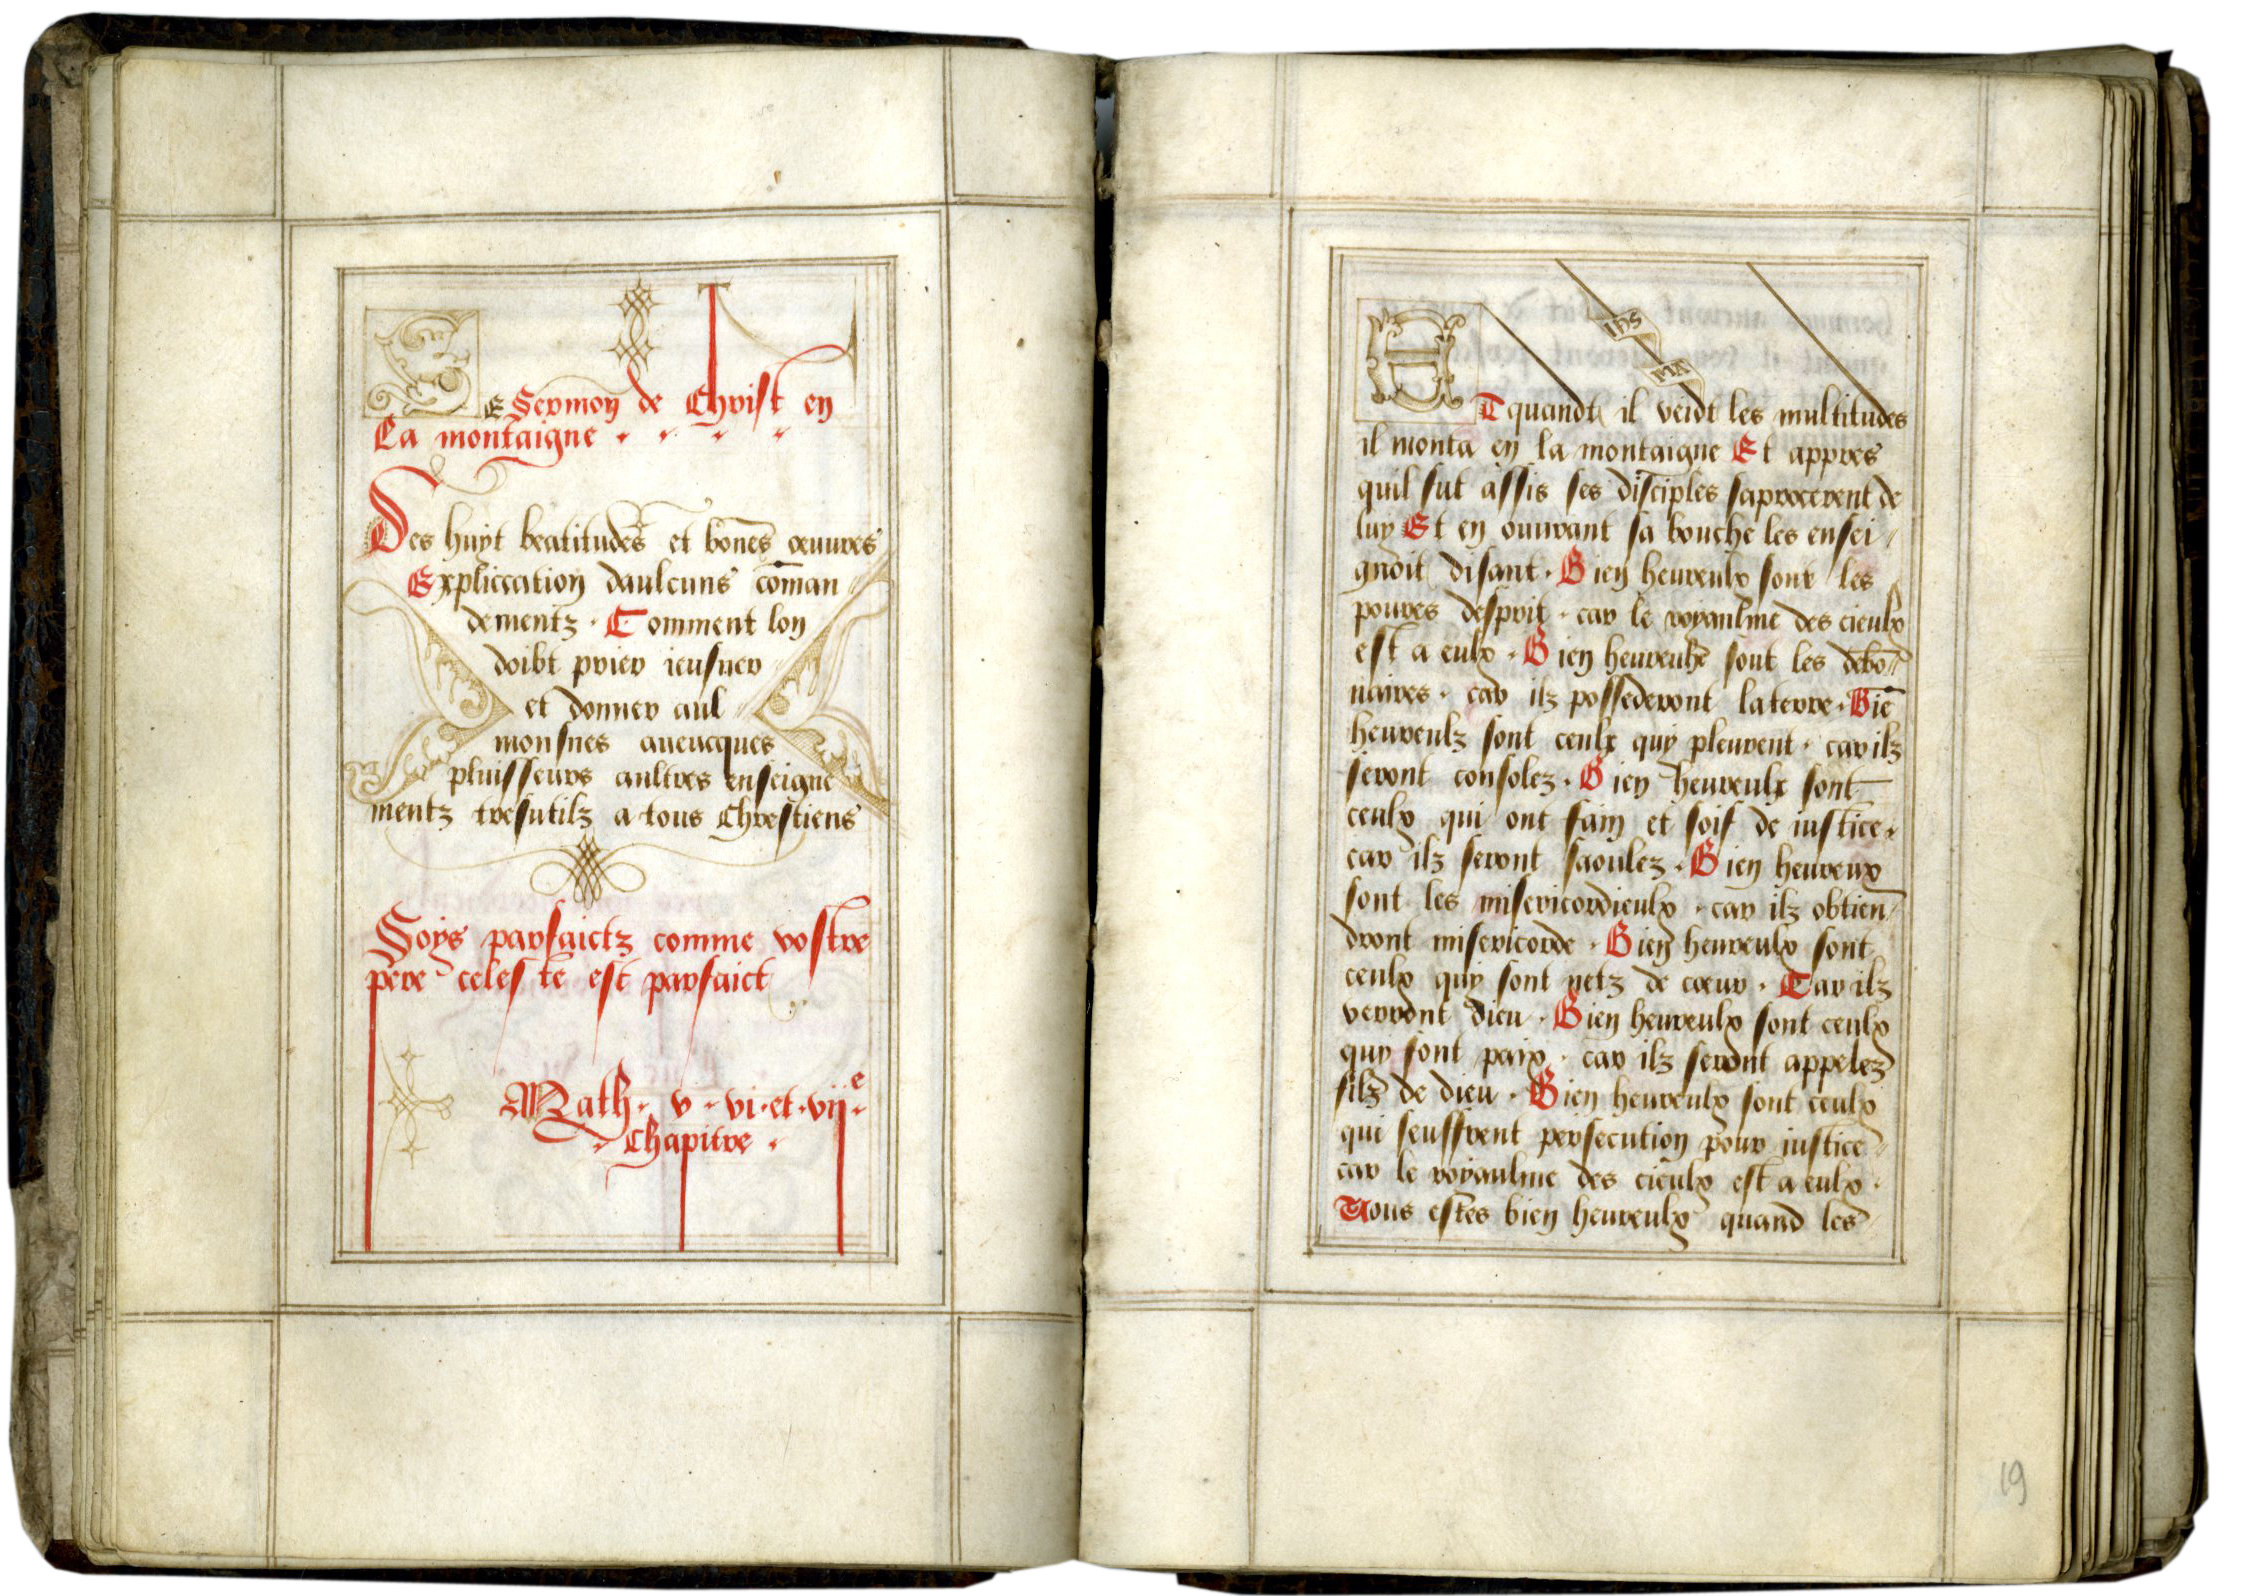 LE Sermon de Christ en
La montaigne
Des huyt beatitudes et bones œuures
Explication daulcuns coman
dementz · Comment lon
doibt prier ieusner
et donner aul
mosnes auecques
pluisseurs aultres enseigne
mentz tresutilz a tous Chrestiens
Soys parfaictz comme vostre
pere celeste est parfaict
Math · v · vi · et · vii e
Chapitre ·
IHS
MA
ET quandt il veidt les multitudes
il monta en la montaigne Et appres
quil fut assis ses disciples saprocerent de
luy Et en ouurant sa bouche les ensei
gnoit disant · Bien heureulx sont les
poures desprit · car le royaulme des cieulx
est a eulx · Bien heureulx sont les debo
naires · car ilz possederont la terre · Bie
heureulz sont ceulx quy pleurent · car ilz
seront consolez · Bien heureulx sont
ceulx qui ont fain et soif de iustice ·
car ilz seront saoulez · Bien heureux
sont les misericordieulx · car ilz obtien
dront misericorde · Bien heureulx sont
ceulx quy sont netz de cœur · Car ilz
verront dieu · Bien heureulx sont ceulx
quy font paix · car ilz seront appelez
filz de dieu · Bien heureulx sont ceulx
qui seuffrent persecution pour iustice
car le royaulme des cieulx est a eulx ·
Vous estes bien heureulx quand les
19